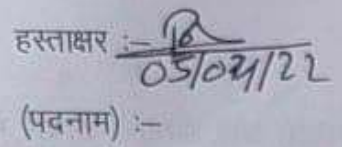 हस्ताक्षर :-
05/04/22
(पदनाम) :-